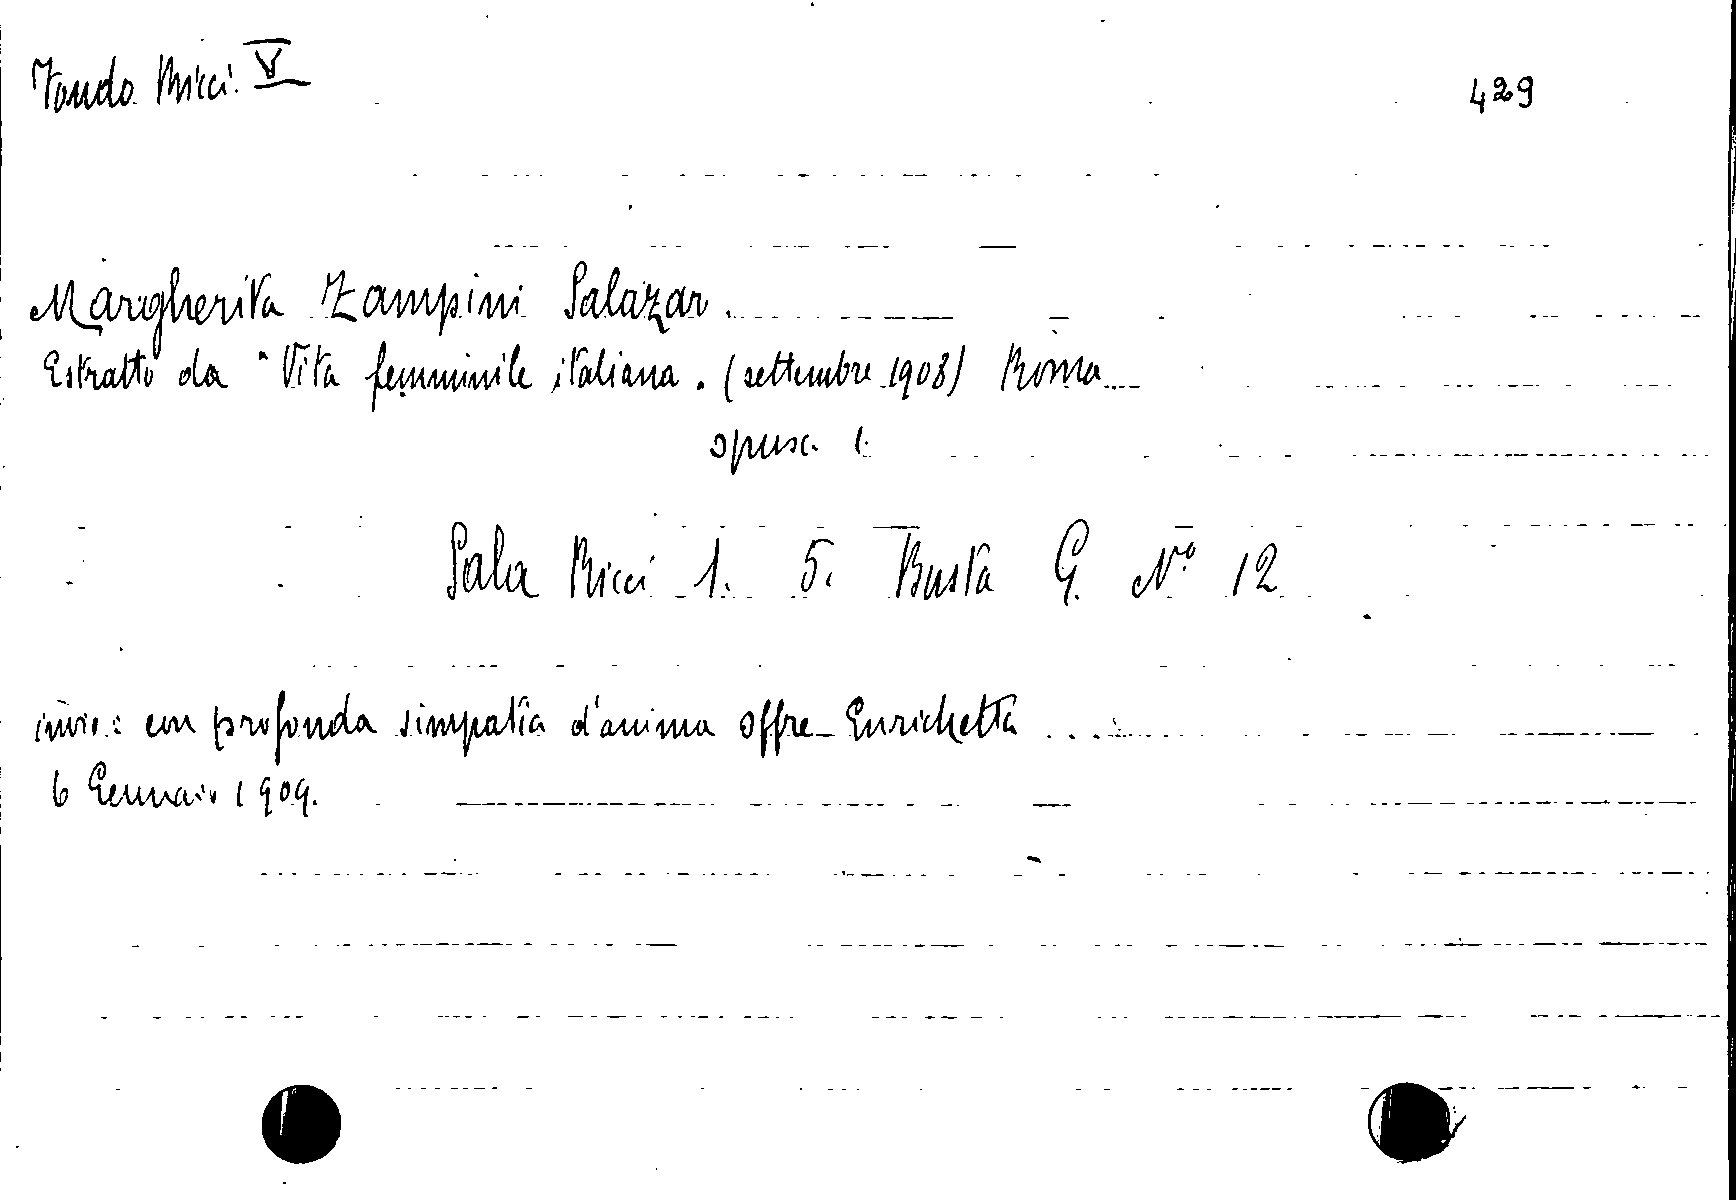 Fondo Ricci V
429
Margherita Zampini Salazar.
Estratto da "Vita femminile italiana. (settembre 1908) Roma
opusc. 1.
Sala Ricci 1. 5. Busta G. N.º 12
invio: con profonda simpatia d'anima offre Enrichetta ...
6 Gennaio 1909.